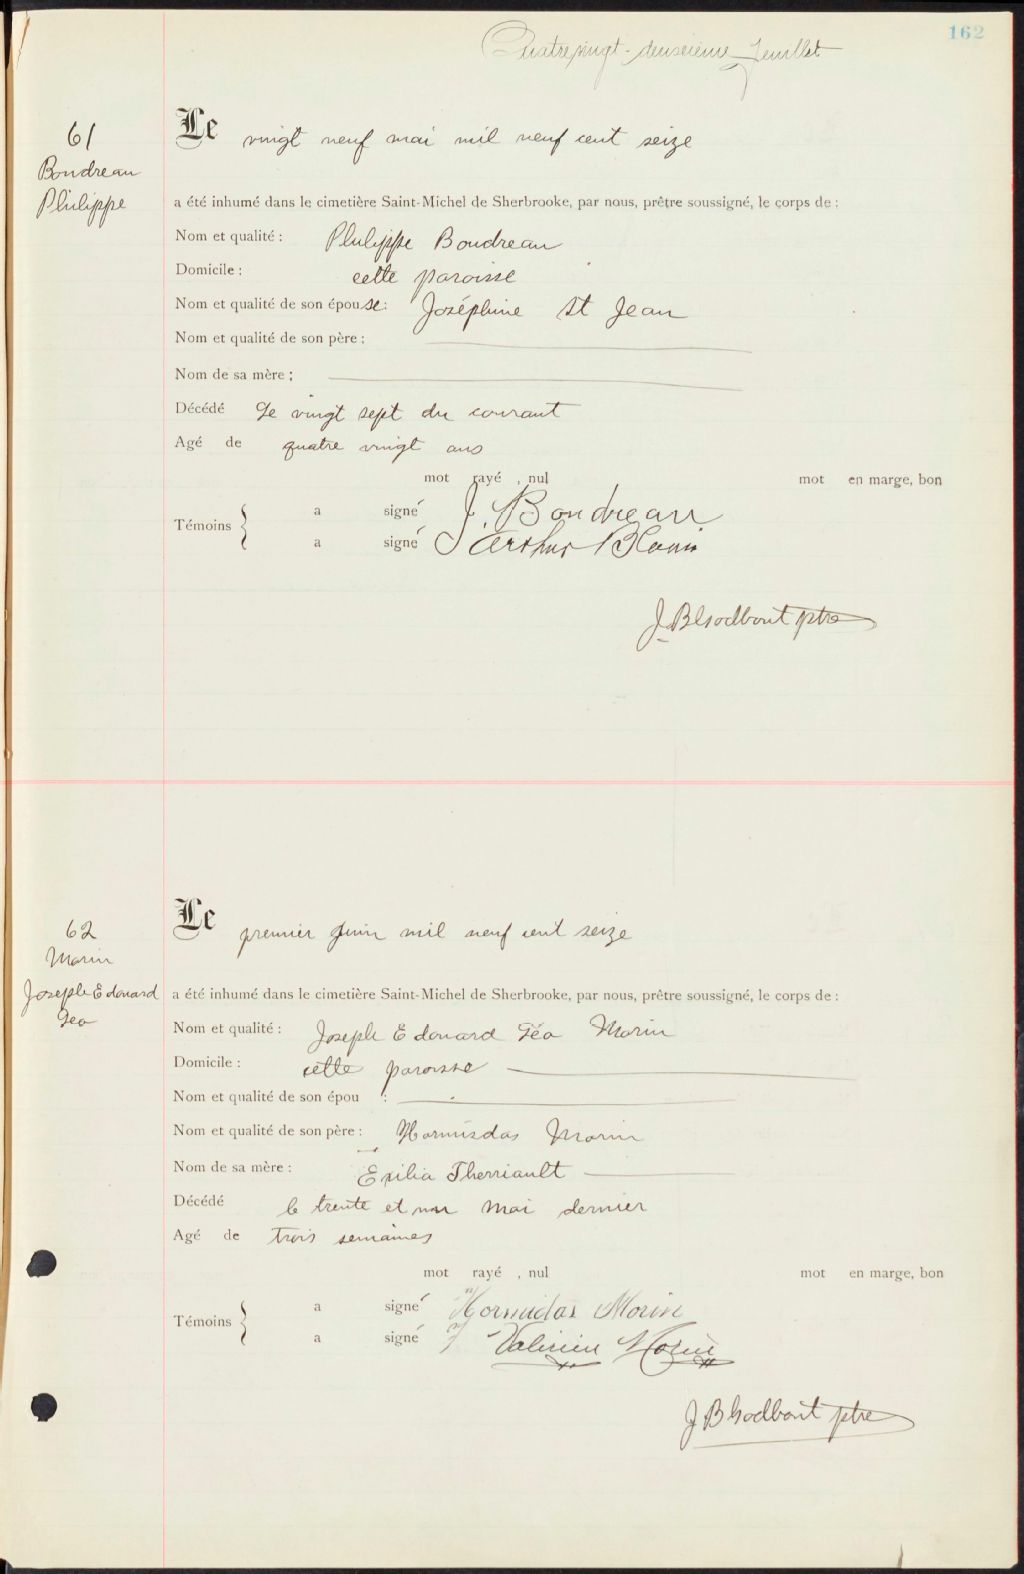 162
Quatre vingt-deuxième feuillet
61
Boudreau
Philippe
Le vingt neuf mai mil neuf cent seize
a été inhumé dans le cimetière Saint-Michel de Sherbrooke, par nous, prêtre soussigné, le corps de :
Nom et qualité : Philippe Boudreau
Domicile : cette paroisse
Nom et qualité de son épouse : Joséphine St Jean
Nom et qualité de son père :
Nom de sa mère ;
Décédé le vingt sept du courant
Agé de quatre vingt ans
mot rayé , nul mot en marge, bon
Témoins { a signé J. Boudreau
a signé Arthur Blouin
J. B. Godbout ptre
62
Morin
Joseph Edouard
Géo
Le premier Juin mil neuf cent seize
a été inhumé dans le cimetière Saint-Michel de Sherbrooke, par nous, prêtre soussigné, le corps de :
Nom et qualité : Joseph Edouard Géo Morin
Domicile : cette paroisse
Nom et qualité de son épou :
Nom et qualité de son père : Hormisdas Morin
Nom de sa mère : Exilia Therriault
Décédé le trente et un mai dernier
Agé de trois semaines
mot rayé , nul mot en marge, bon
Témoins { a signé Hormidas Morin
a signé Morin
J B Godbout ptre